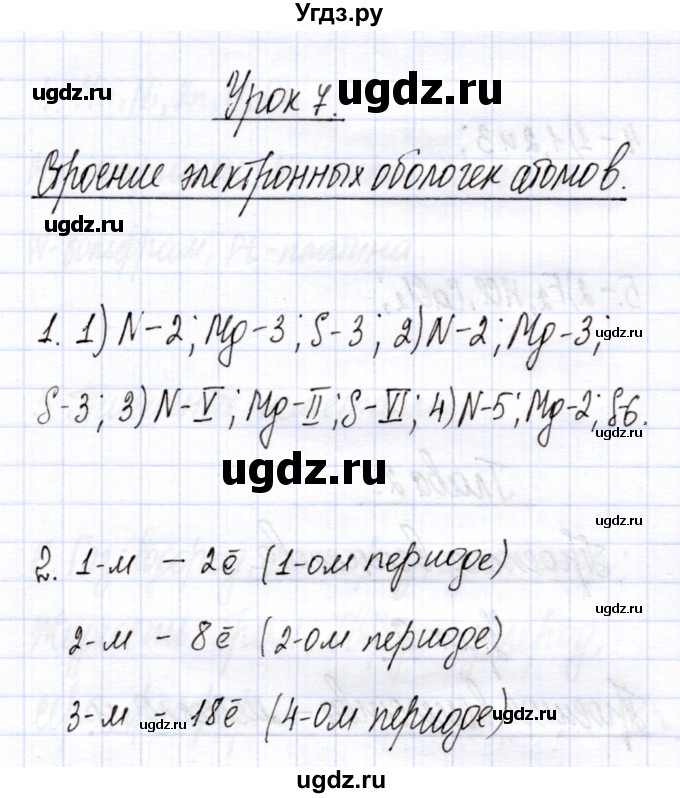 Угдз.ру
Урок 7.
ugdz.ru
ugdz.ru
Строение электронных оболочек атомов.
ugdz.ru
1. 1) N-2; Mg-3; S-3; 2) N-2; Mg-3;
ugdz.ru
S-3; 3) N-V; Mg-II; S-VI; 4) N-5; Mg-2; S-6.
ugdz.ru
ugdz.ru
2. 1-м - 2ē (1-ом периоде)
ugdz.ru
2-м - 8ē (2-ом периоде)
3-м - 18ē (4-ом периоде)
ugdz.ru
ugdz.ru
ugdz.ru